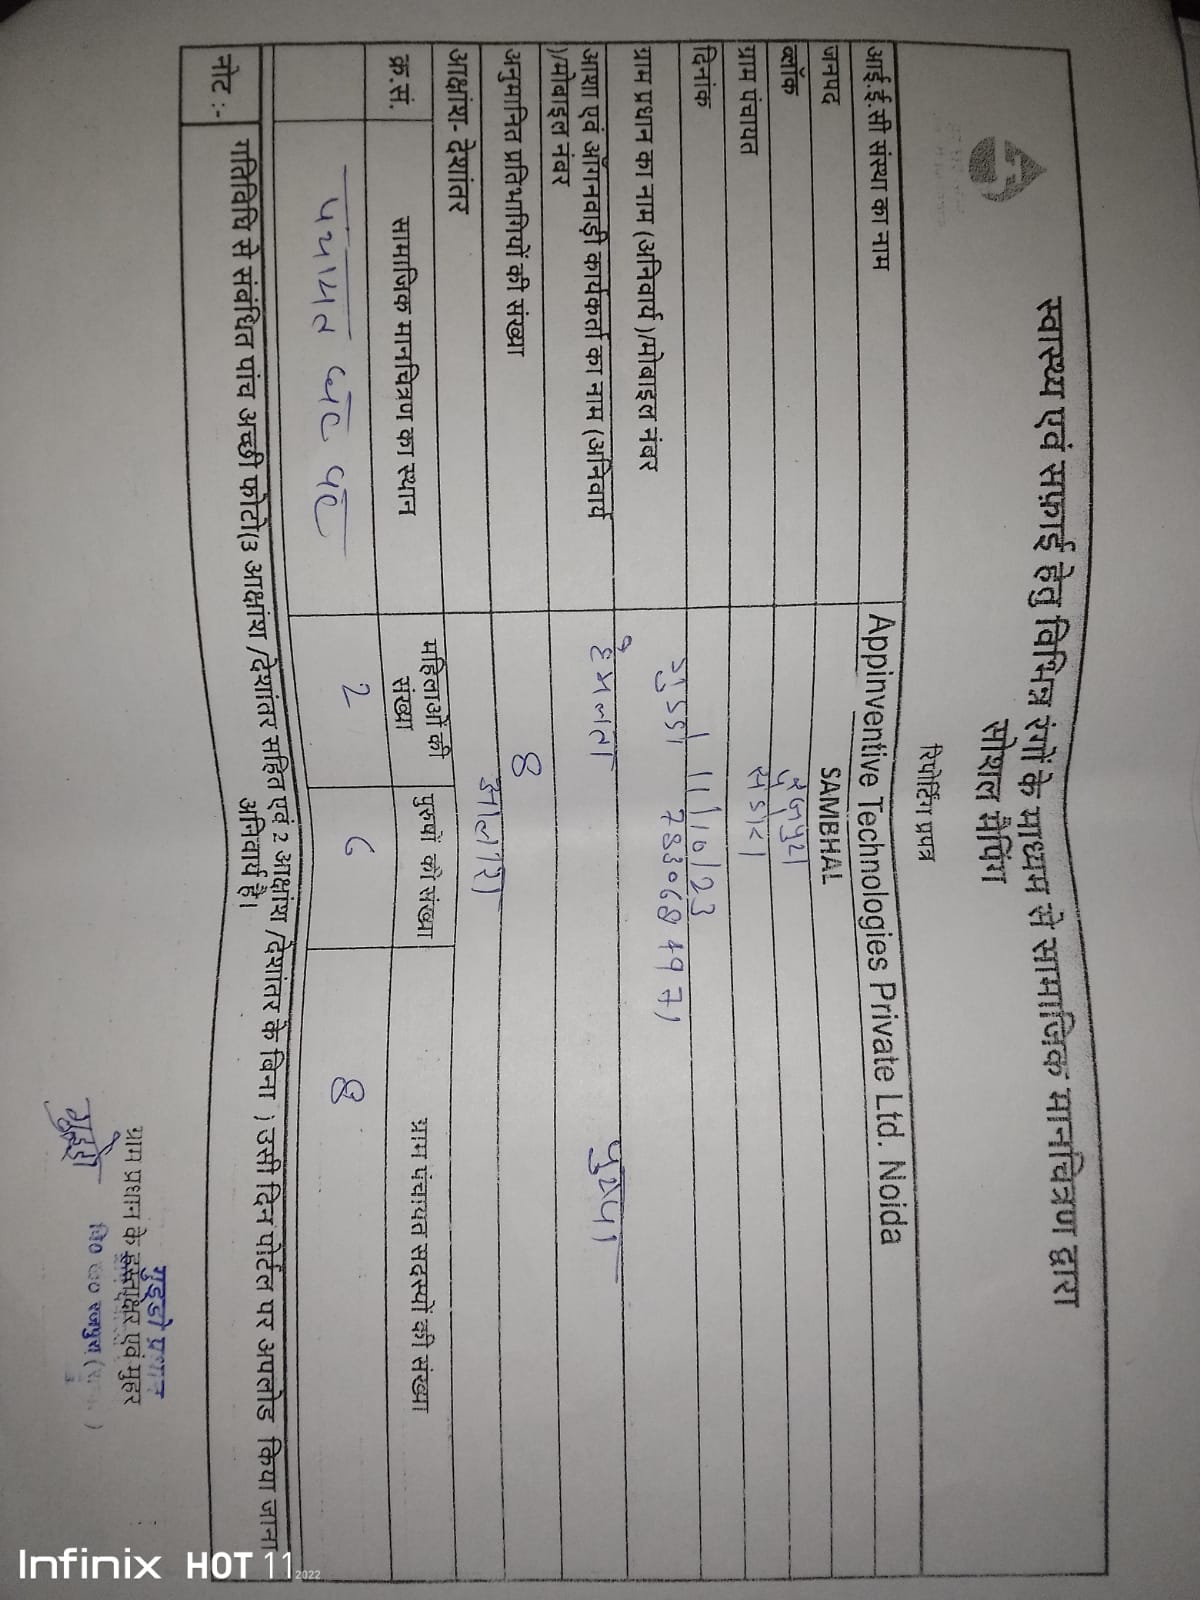 स्वास्थ्य एवं सफ़ाई हेतु विभिन्न रंगों के माध्यम से सामाजिक मानचित्रण द्वारा
सोशल मैपिंग
रिपोर्टिंग प्रपत्र
आई.ई.सी संस्था का नाम Appinventive Technologies Private Ltd. Noida
जनपद SAMBHAL
ब्लॉक रजपुरा
ग्राम पंचायत
दिनांक 11/10/23
ग्राम प्रधान का नाम (अनिवार्य)/मोबाइल नंबर गुड्डो
आशा एवं आँगनवाड़ी कार्यकर्ता का नाम (अनिवार्य हेमलता पुष्पा
)/मोबाइल नंबर
अनुमानित प्रतिभागियों की संख्या 8
आक्षांश- देशांतर
क्र.सं. सामाजिक मानचित्रण का स्थान महिलाओं की संख्या पुरुषों की संख्या ग्राम पंचायत सदस्यों की संख्या
पंचायत घर पर 2 6 8
नोट :- गतिविधि से संबंधित पांच अच्छी फोटो(3 आक्षांश /देशांतर सहित एवं 2 आक्षांश /देशांतर के बिना ) उसी दिन पोर्टल पर अपलोड किया जाना
अनिवार्य है।
गुड्डो प्रधान
ग्राम प्रधान के हस्ताक्षर एवं मुहर
गुड्डो वि0 ख0 रजपुरा
Infinix HOT 11 2022